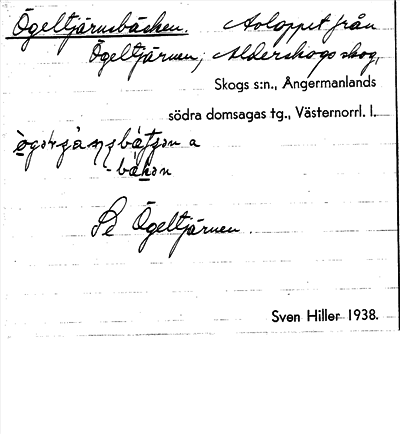 Ögeltjärnsbäcken. Avloppet från
Ögeltjärnen, Alderskogs skog,
Skogs s:n., Ångermanlands
södra domsagas tg., Västernorrl. l.
Se Ögeltjärnen.
Sven Hiller 1938.